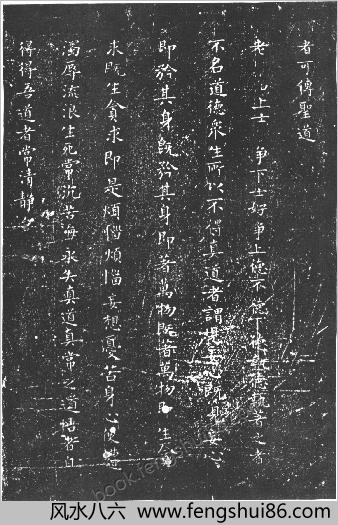 者可傳聖道
老上士爭下士好爭上德不德下德執著之者
不名道德衆生所以不得真道者謂妄心既妄心
即矜其身既矜其身即著萬物既著萬物生
求既生貪求即是煩惱煩惱妄想憂苦身心便遭
濁辱流浪生死常沉苦海永失真道真常之道悟者自
得得吾道者常清靜矣
book.fengshui86.com
风水八六 www.fengshui86.com